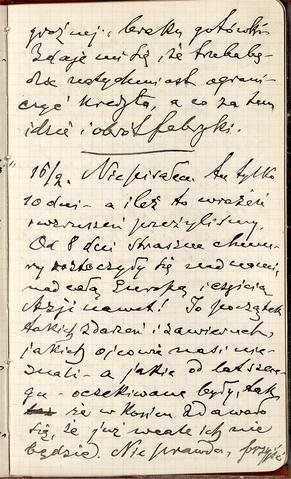 groźnej, braku gotówki.
Zdaje mi się, że trzeba bę-
dzie natychmiast ograni-
czyć kredyta, a co za tem
idzie i obrót fabryki.
16/2. Nie pisałem tu tylko
10 dni - a ileż to wrażeń
i wzruszeń przeżyliśmy.
Od 8 dni straszne chmu-
ry roztoczyły się nad nami,
nad całą Europą i częścią
Azji nawet! To początek
takich zdarzeń i zawieruch,
jakich ojcowie nasi nie
znali - a jakie od lat szere-
gu - oczekiwane były, tak
że w końcu zdawało
się, że już wcale ich nie
będzie. Nieprawda, przyjść